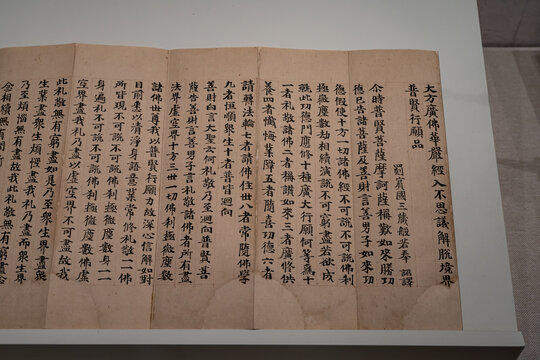 大方廣佛華嚴經入不思議解脫境界
普賢行願品
罽賓國三藏般若奉 詔譯
尒時普賢菩薩摩訶薩稱歎如來勝功
德已告諸菩薩及善財言善男子如來功
德假使十方一切諸佛經不可說不可說佛剎
極微塵數劫相續演說不可窮盡若欲成
就此功德門應修十種廣大行願何等為十
一者礼敬諸佛二者稱讚如來三者廣修供
養四者懺悔業障五者隨喜功德六者
請轉法輪七者請佛住世八者常隨佛學
九者恒順衆生十者普皆迴向
善財白言大聖云何礼敬乃至迴向普賢菩
薩告善財言善男子言礼敬諸佛者所有盡
法界虛空界十方三世一切佛剎極微塵數
諸佛世尊我以普賢行願力故深心信解如對
目前悉以清淨身語意業常修礼敬一一佛
所皆現不可說不可說佛剎極微塵數身一一
身遍礼不可說不可說佛剎極微塵數佛虛
空界盡我礼乃盡以虛空界不可盡故我
此礼敬無有窮盡如是乃至衆生界盡衆
生業盡衆生煩惱盡我礼乃盡而衆生界
乃至煩惱無有盡故我此礼敬無有窮盡念
念相續無有間